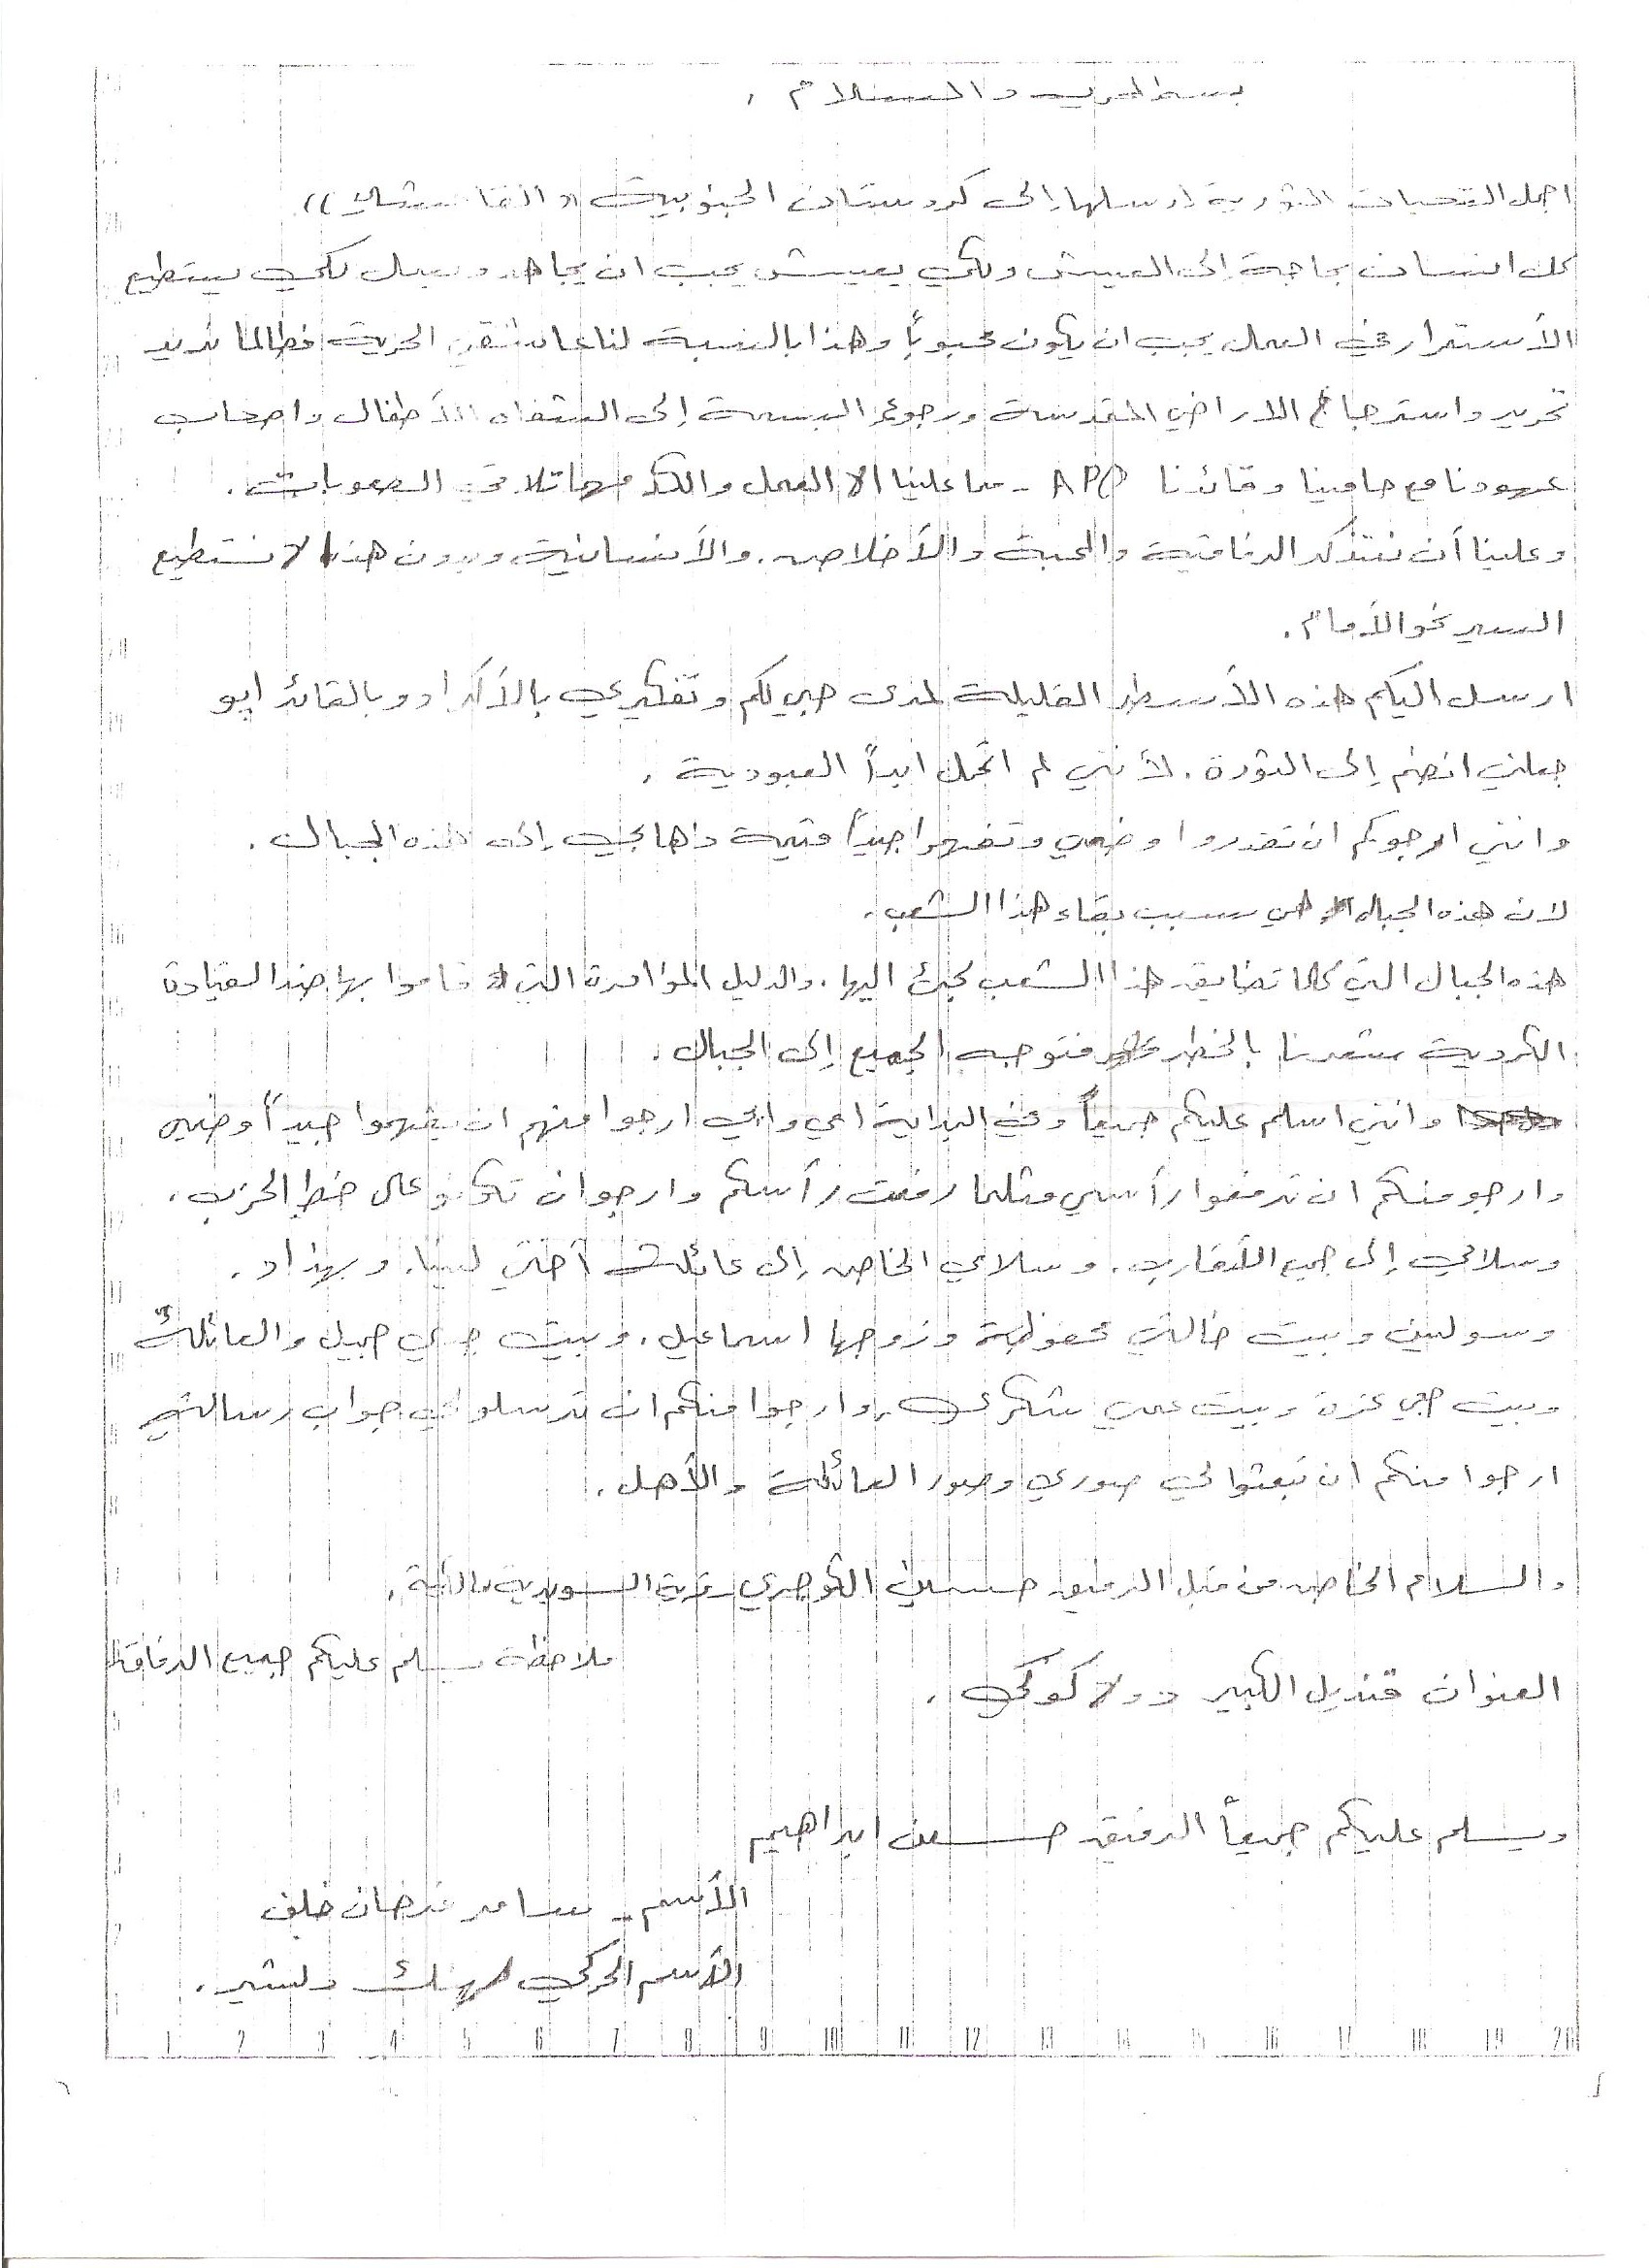 بسم الحرية والسلام .
اجمل التحيات الثورية ارسلها إلى كردستان الجنوبية ((
كل انسان بحاجة إلى العيش ولكي يعيش يجب ان يجاهد ويعمل لكي يستطيع
الأستمرار في العمل يجب ان يكون محبوباً وهذا بالنسبة لنا الحرية فطالما نريد
تحرير واسترجاع الاراضي المقدسة ورجوع البسمة إلى الشفاه الأطفال واصحاب
عهودنا مع حامينا وقائدنا APO - ما علينا الا العمل والكد مهما تلاقي الصعوبات .
وعلينا أن نتذكر الرفاقية والمحبة والأخلاص . والأنسانية وبدون هذا لا نستطيع
السير نحو الأمام .
ارسل اليكم هذه الأسطر القليلة لمدى حبي لكم وتفكيري بالأكراد وبالقائد اپو
جعلني انضم إلى الثورة . لأنني لم اتحمل ابداً العبودية .
وانني ارجوكم ان تقدروا وضعي وتفهموا جيداً قيمة ذهابي إلى هذه الجبال .
لان هذه الجبال هي سبب بقاء هذا الشعب .
هذه الجبال التي كلما تضايق هذا الشعب لجئ اليها . والدليل المؤامرة التي قاموا بها ضد القيادة
الكردية شعرنا بالخطر فتوجه الجميع إلى الجبال .
وانني اسلم عليكم جميعاً وفي البداية امي وابي ارجوا منهم ان يفهموا جيداً وضعي
وارجو منكم ان ترفعوا رأسي مثلما رفعت رأسكم وارجو ان تكونو على خط الحزب .
وسلامي إلى جميع الأقارب . وسلامي الخاص إلى عائلة أختي لينا . وبهزاد .
وسولين وبيت خالتي محفوظة وزوجها اسماعيل . وبيت جميل والعائلة
وبيت عزة وبيت عمي شكري . وارجوا منكم ان ترسلوا لي جواب رسالتي
ارجوا منكم ان تبعثوا لي صوري وصور العائلة والأهل .
والسلام الخاص من قبل الرفيق حسين الكوجري قرية السويدية
ملاحظة يسلم عليكم جميع الرفاقة
العنوان قنديل الكبير دولا كوكي .
ويسلم عليكم جميعاً الرفيق حسين ابراهيم
الأسم - سامر فرحان خلف
الأسم الحركي دلشير .
1 2 3 4 5 6 7 8 9 10 11 12 13 14 15 16 17 18 19 20